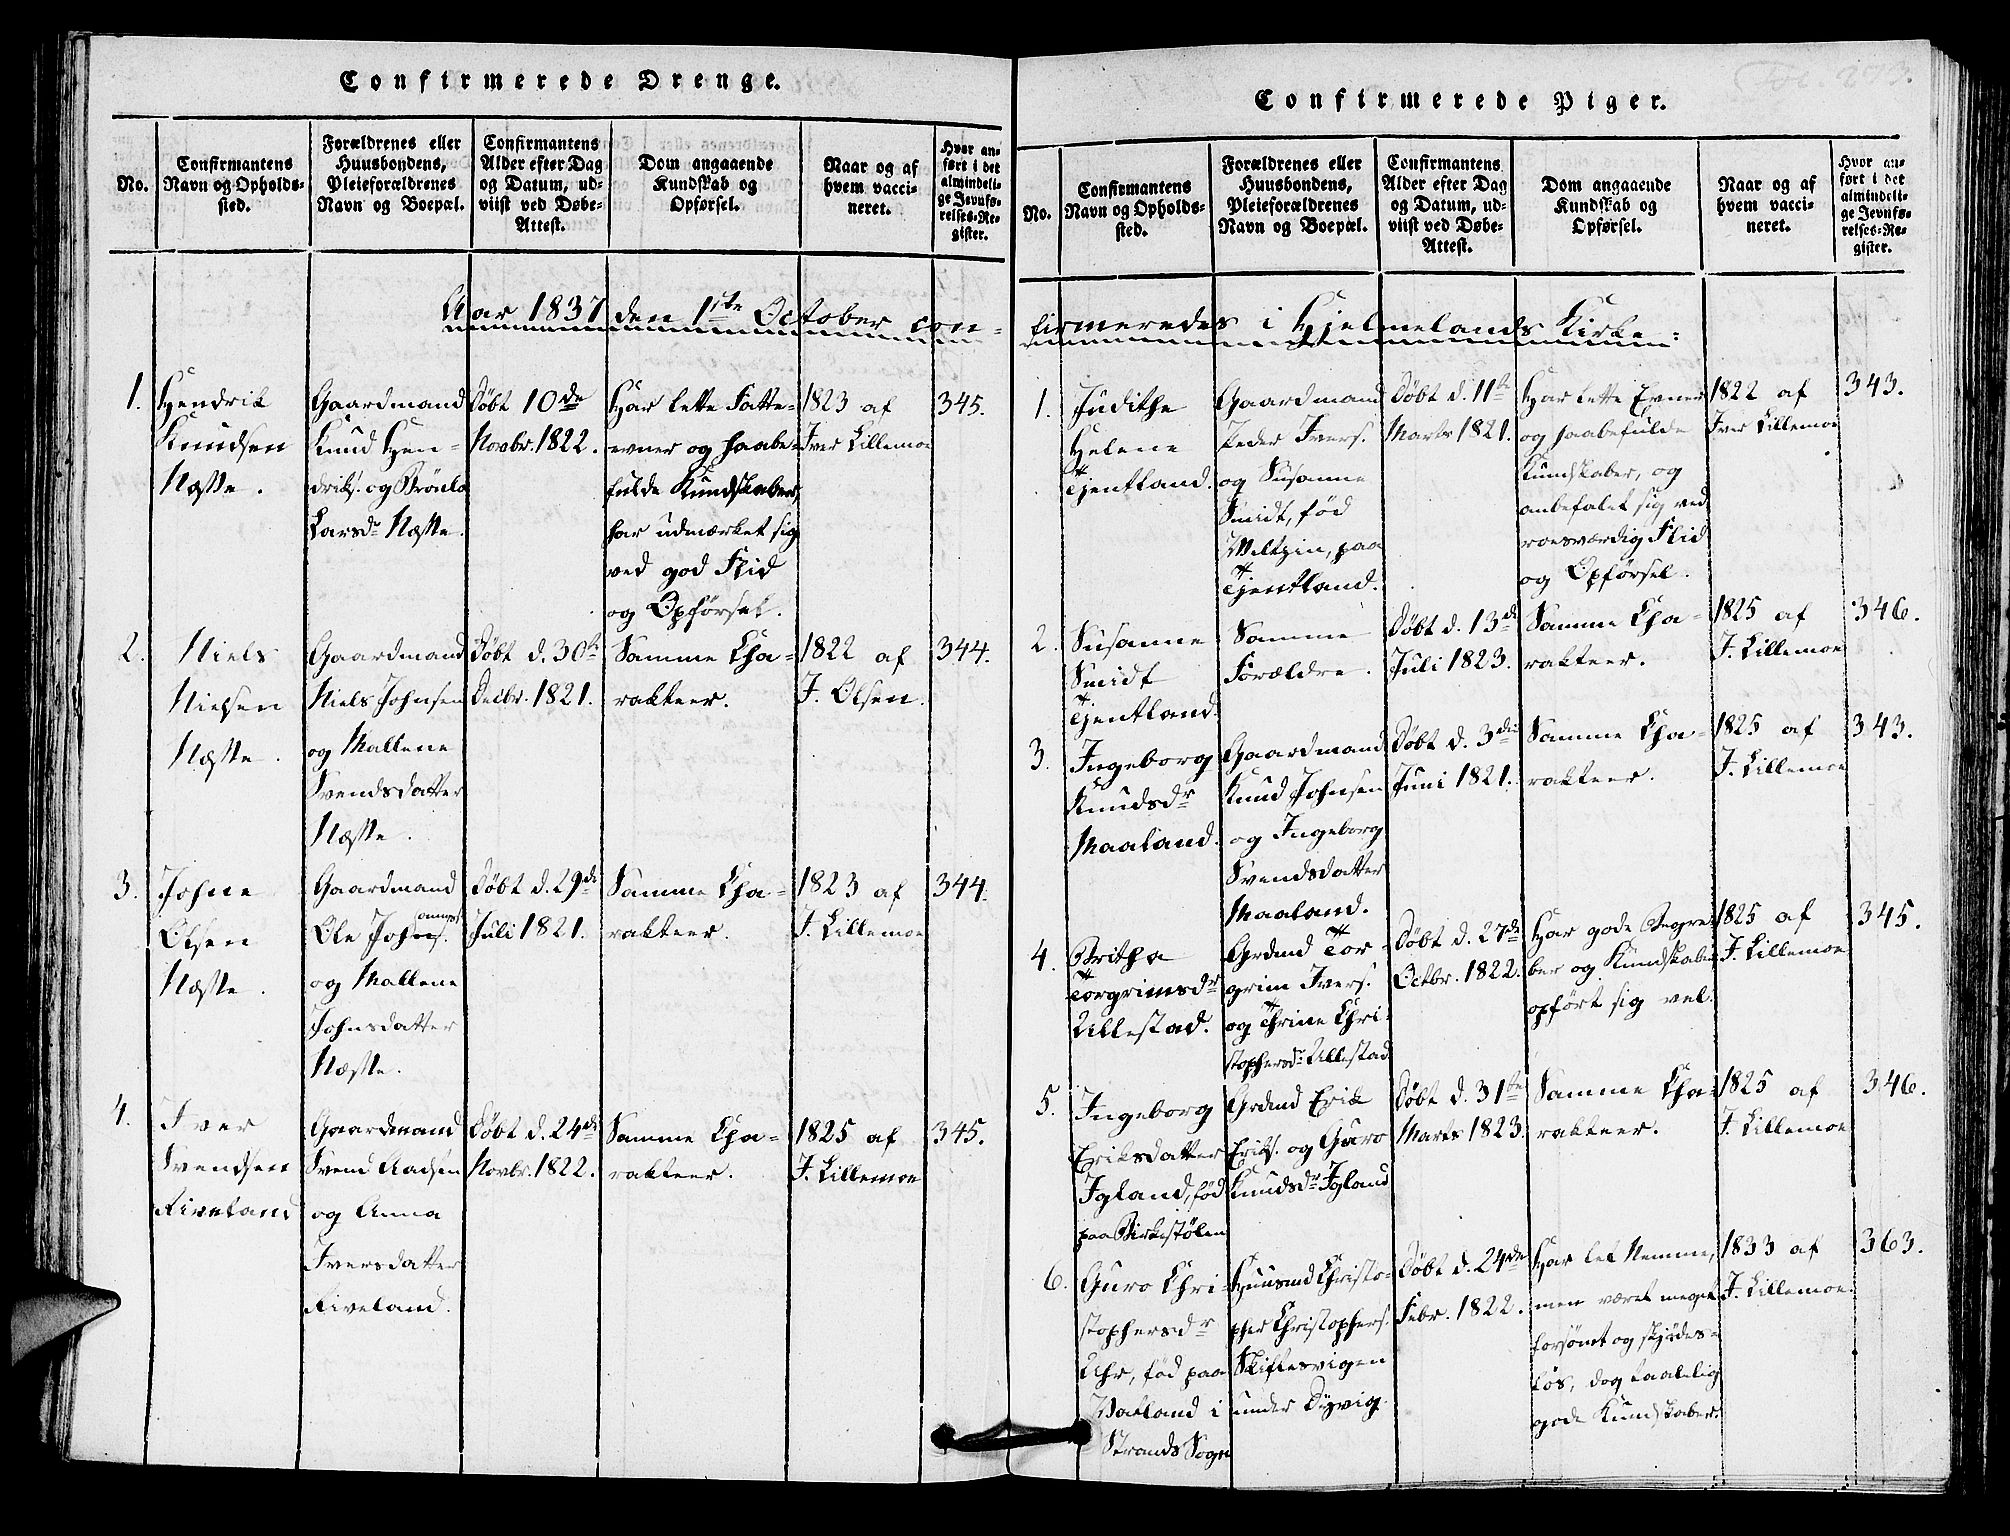 Confirmerede Drenge.
No.
Confirmantens
Navn og Opholds-
sted.
Forældrenes eller
Huusbondens,
Pleieforældrenes
Navn og Boepæl.
Confirmantens
Alder efter Dag
og Datum, ud-
viist ved Døbe-
Attest.
Dom angaaende
Kundskab og
Opførsel.
Naar og af
hvem vacci-
neret.
Hvor an-
ført i det
almindeli-
ge Jevnfø-
relses-Re-
gister.
Aar 1837 den 1ste October con-
1.
Hendrik
Knudsen
Næsse.
Gaardmand
Knud Hen-
driks. og Brønla
Larsdr Næsse.
Døbt 10de
Novbr. 1822.
Har lette Fatte-
evner og haabe-
fulde Kundskaber,
har udmærket sig
ved god Flid
og Opførsel.
1823 af
Iver Lillemoe
345.
2.
Niels
Nielsen
Næsse.
Gaardmand
Niels Johnsen
og Mallene
Svendsdatter
Næsse.
Døbt d. 30te
Decbr. 1821.
Samme Cha-
rakteer.
1822 af
J. Olsen.
344.
3.
Johne
Olsen
Næsse.
Gaardmand
Ole Johns.
og Mallene
Johnsdatter
Næsse.
Døbt d. 29de
Juli 1821.
Samme Cha-
rakteer.
1823 af
J. Lillemoe
344.
4.
Iver
Svendsen
Riveland
Gaardmand
Svend Aadsen
og Anna
Iversdatter
Riveland.
Døbt d. 24de
Novbr. 1822.
Samme Cha-
rakteer.
1825 af
J. Lillemoe
345.
Fol. 273.
Confirmerede Piger.
No.
Confirmantens
Navn og Opholds-
sted.
Forældrenes eller
Huusbondens,
Pleieforældrenes
Navn og Boepæl.
Confirmantens
Alder efter Dag
og Datum, ud-
viist ved Døbe-
Attest.
Dom angaaende
Kundskab og
Opførsel.
Naar og af
hvem vacci-
neret.
Hvor an-
ført i det
almindeli-
ge Jevnfø-
relses-Re-
gister.
firmeredes i Hjelmelands Kirke:
1.
Judithe
Helene
Tjentland.
Gaardmand
Peder Ivers.
og Susanne
Smidt, fød
Weltzin, paa
Tjentland.
Døbt d. 11te
Marts 1821.
Har lette Evner
og haabefulde
Kundskaber, og
anbefalet sig ved
roesværdig Flid
og Opførsel.
1822 af
Iver Lillemoe
343.
2.
Susanne
Smidt
Tjentland.
Samme
Forældre.
Døbt d. 13de
Juli 1823.
Samme Cha-
rakteer.
1825 af
J. Lillemoe
346.
3.
Ingeborg
Knudsdr
Maaland.
Gaardmand
Knud Johnsen
og Ingeborg
Svendsdatter
Maaland.
Døbt d. 3die
Juni 1821.
Samme Cha-
rakteer.
1825 af
J. Lillemoe
343.
4.
Britha
Torgrimsdr
Ullestad.
Grdmd Tor-
grim Ivers.
og Thrine Chri-
stophersdr Ullestad
Døbt d. 27de
Octbr. 1822.
Har gode Begre-
ber og Kundskaber
opført sig vel.
1825 af
J. Lillemoe
345.
5.
Ingeborg
Eriksdatter
Igland, fød
paa Birkestølen
Grdmd Erik
Eriks. og Guro
Knudsdr Igland
Døbt d. 31te
Marts 1823.
Samme Cha-
rakteer.
1825 af
J. Lillemoe
346.
6.
Guro Chri-
stophersdr
Uhr, fød paa
Vatland i
Strands Sogn
Huusmd Christo-
pher Christophers.
Skiftesvigen
under Dyvig
Døbt d. 24de
Febr. 1822.
Har let Nemme,
men været meget
forsømt og skjødes-
løs, dog taalelig
gode Kundskaber.
1833 af
J. Lillemoe.
363.